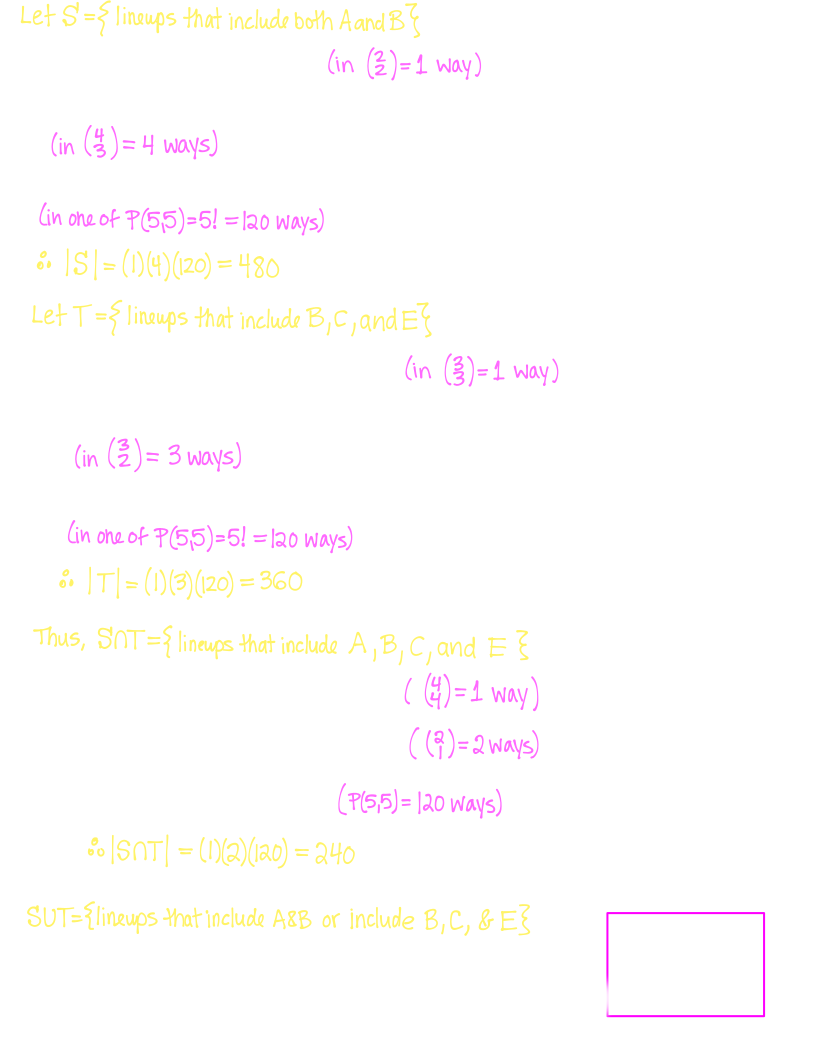 Let S={lineups that include both A and B}
(in (2 2)=1 way)
(in (4 3)=4 ways)
(in one of P(5,5)=5!=120 ways)
∴ |S|=(1)(4)(120)=480
Let T={lineups that include B,C,and E}
(in (3 3)=1 way)
(in (3 2)=3 ways)
(in one of P(5,5)=5!=120 ways)
∴ |T|=(1)(3)(120)=360
Thus, S∩T={lineups that include A,B,C,and E}
((4 4)=1 way)
((2 1)=2 ways)
(P(5,5)=120 ways)
∴ |S∩T|=(1)(2)(120)=240
SUT={lineups that include A&B or include B,C,& E}